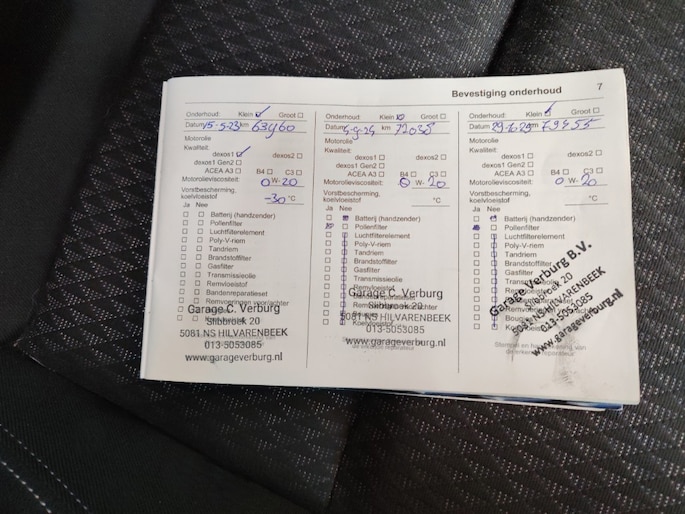 Bevestiging onderhoud 7
Onderhoud: Klein Groot
Datum 15-5-23 km 63460
Motorolie
Kwaliteit:
dexos1 dexos2
dexos1 Gen2
ACEA A3 B4 C3
Motorolieviscositeit: 0 W- 20
Vorstbescherming,
koelvloeistof -30 °C
Ja Nee
Batterij (handzender)
Pollenfilter
Luchtfilterelement
Poly-V-riem
Tandriem
Brandstoffilter
Gasfilter
Transmissieolie
Remvloeistof
Bandenreparatieset
Remvoeringen voor/achter
Garage C. Verburg
Slibbroek 20
5081 NS HILVARENBEEK
013-5053085
www.garageverburg.nl
Onderhoud: Klein Groot
Datum 4-9-24 km 72035
Motorolie
Kwaliteit:
dexos1 dexos2
dexos1 Gen2
ACEA A3 B4 C3
Motorolieviscositeit: 0 W- 20
Vorstbescherming,
koelvloeistof °C
Ja Nee
Batterij (handzender)
Pollenfilter
Luchtfilterelement
Poly-V-riem
Tandriem
Brandstoffilter
Gasfilter
Transmissieolie
Remvloeistof
Garage C. Verburg
Slibbroek 20
5081 NS HILVARENBEEK
013-5053085
www.garageverburg.nl
Onderhoud: Klein Groot
Datum km
Motorolie
Kwaliteit:
dexos1 dexos2
dexos1 Gen2
ACEA A3 B4 C3
Motorolieviscositeit: 0 W- 20
Vorstbescherming,
koelvloeistof °C
Ja Nee
Batterij (handzender)
Pollenfilter
Luchtfilterelement
Poly-V-riem
Tandriem
Brandstoffilter
Gasfilter
Transmissieolie
Garage Verburg B.V.
Slibbroek 20
5081 NS HILVARENBEEK
013-5053085
www.garageverburg.nl